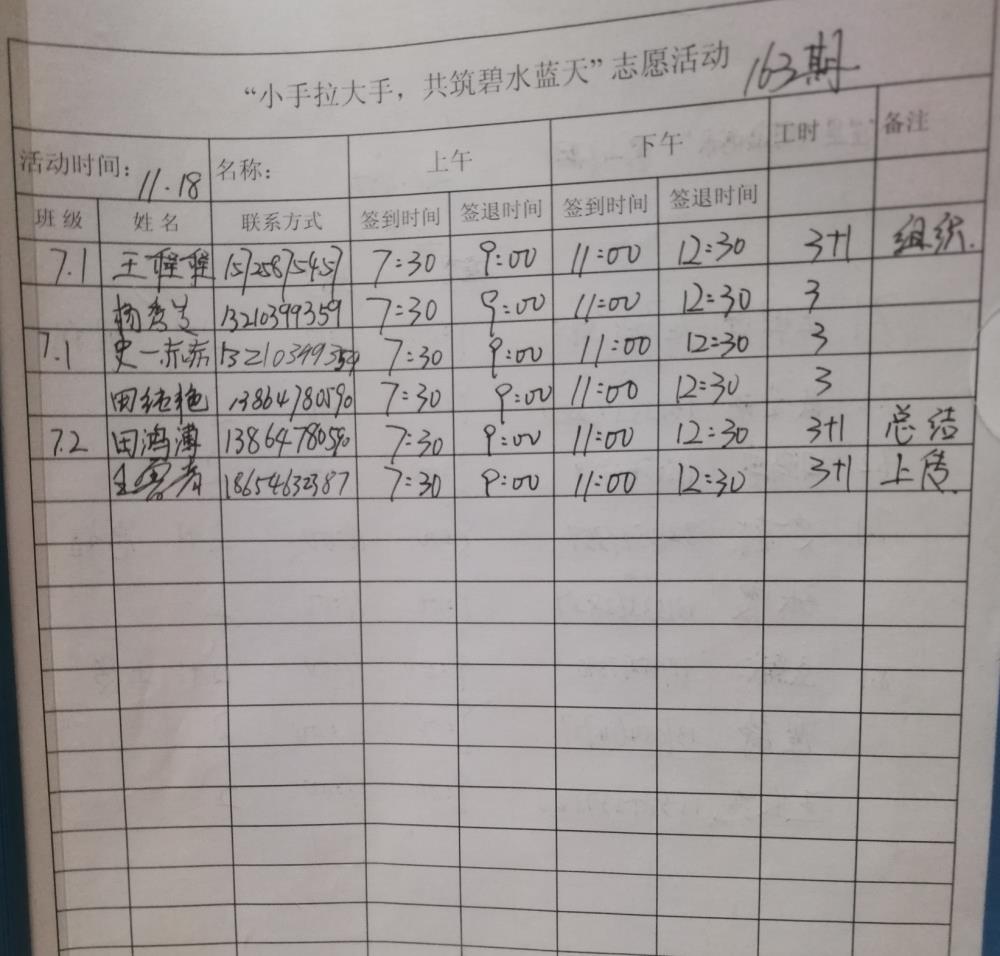 “小手拉大手，共筑碧水蓝天”志愿活动 163期
活动时间：11.18 名称： 上午 下午 工时 备注
班级 姓名 联系方式 签到时间 签退时间 签到时间 签退时间
7.1 王 15725875457 7:30 9:00 11:00 12:30 3+1 组织.
杨秀兰 13210399359 7:30 9:00 11:00 12:30 3
7.1 史一 13210399359 7:30 9:00 11:00 12:30 3
田纯艳 13864780590 7:30 9:00 11:00 12:30 3
7.2 田鸿溥 13864780590 7:30 9:00 11:00 12:30 3+1 总结
18654632387 7:30 9:00 11:00 12:30 3+1 上传.